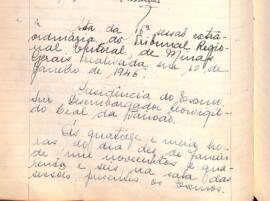 Ata da 16ª sessão extra
ordinária do Tribunal Regio
nal Eleitoral de Minas
Gerais, realizada em 10 de
janeiro de 1946.
Presidência do Exmo.
Snr. Desembargador Leovigil
do Leal da Paixão.
Às quatorze e meia ho
ras do dia dez de janeiro
de mil novecentos e qua
renta e seis na sala das
sessões, presentes os Exmos.